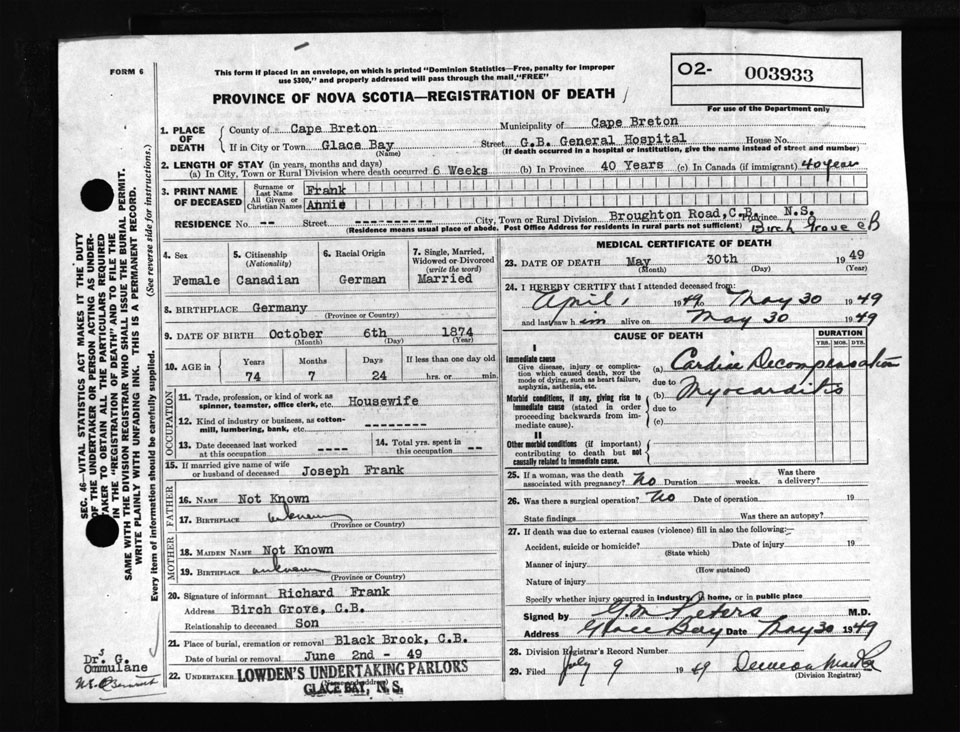 FORM 6
This form if placed in an envelope, on which is printed "Dominion Statistics—Free, penalty for improper
use $300," and properly addressed will pass through the mail, "FREE"
PROVINCE OF NOVA SCOTIA—REGISTRATION OF DEATH
O2- 003933
For use of the Department only
SEC. 46—VITAL STATISTICS ACT MAKES IT THE DUTY
OF THE UNDERTAKER OR PERSON ACTING AS UNDER-
TAKER TO OBTAIN ALL THE PARTICULARS REQUIRED
IN THE "REGISTRATION OF DEATH" AND TO FILE THE
SAME WITH THE DIVISION REGISTRAR WHO SHALL ISSUE THE BURIAL PERMIT.
WRITE PLAINLY WITH UNFADING INK. THIS IS A PERMANENT RECORD.
Every item of information should be carefully supplied. (See reverse side for instructions.)
1. PLACE OF DEATH
County of Cape Breton Municipality of Cape Breton
If in City or Town Glace Bay Street G.B. General Hospital House No.
(Name) (If death occurred in a hospital or institution, give the name instead of street and number)
2. LENGTH OF STAY (in years, months and days)
(a) In City, Town or Rural Division where death occurred 6 Weeks (b) In Province 40 Years (c) In Canada (if immigrant) 40 year
3. PRINT NAME OF DECEASED
Surname or Last Name Frank
All Given or Christian Names Annie
RESIDENCE No. -- Street ---------- City, Town or Rural Division Broughton Road, C.B. Province N.S.
(Residence means usual place of abode. Post Office Address for residents in rural parts not sufficient) Birch Grove CB
4. Sex
Female
5. Citizenship
(Nationality)
Canadian
6. Racial Origin
German
7. Single, Married,
Widowed or Divorced
(write the word)
Married
8. BIRTHPLACE Germany
(Province or Country)
9. DATE OF BIRTH October 6th 1874
(Month) (Day) (Year)
10. AGE in
Years Months Days If less than one day old
74 7 24 hrs. or min.
OCCUPATION
11. Trade, profession, or kind of work as
spinner, teamster, office clerk, etc. Housewife
12. Kind of industry or business, as cotton-
mill, lumbering, bank, etc. --------
13. Date deceased last worked
at this occupation ----
14. Total yrs. spent in
this occupation --
15. If married give name of wife
or husband of deceased Joseph Frank
FATHER
16. NAME Not Known
17. BIRTHPLACE unknown
(Province or Country)
MOTHER
18. MAIDEN NAME Not Known
19. BIRTHPLACE unknown
(Province or Country)
20. Signature of informant Richard Frank
Address Birch Grove, C.B.
Relationship to deceased Son
21. Place of burial, cremation or removal Black Brook, C.B.
Date of burial or removal June 2nd - 49
22. UNDERTAKER LOWDEN'S UNDERTAKING PARLORS
(Name and address)
GLACE BAY, N. S.
Dr. G.
Ommulane
MEDICAL CERTIFICATE OF DEATH
23. DATE OF DEATH May 30th 1949
(Month) (Day) (Year)
24. I HEREBY CERTIFY that I attended deceased from:
April 1 1949 to May 30 1949
and last saw him alive on May 30 1949
CAUSE OF DEATH
DURATION
YRS. MOS. DYS.
I
Immediate cause
Give disease, injury or complica-
tion which caused death, NOT the
mode of dying, such as heart failure,
asphyxia, asthenia, etc.
(a) Cardiac Decompensation
due to
Morbid conditions, if any, giving rise to
immediate cause (stated in order
proceeding backwards from im-
mediate cause).
(b) Myocarditis
due to
(c)
II
Other morbid conditions (if important)
contributing to death but not
causally related to immediate cause.
25. If a woman, was the death
associated with pregnancy? No Duration weeks. Was there
a delivery?
26. Was there a surgical operation? No Date of operation 19
State findings Was there an autopsy?
27. If death was due to external causes (violence) fill in also the following:—
Accident, suicide or homicide? Date of injury 19
(State which)
Manner of injury
(How sustained)
Nature of injury
Specify whether injury occurred in industry, in home, or in public place
Signed by G.M. Peters M.D.
Address Glace Bay Date May 30 1949
28. Division Registrar's Record Number
29. Filed July 9 1949
(Division Registrar)